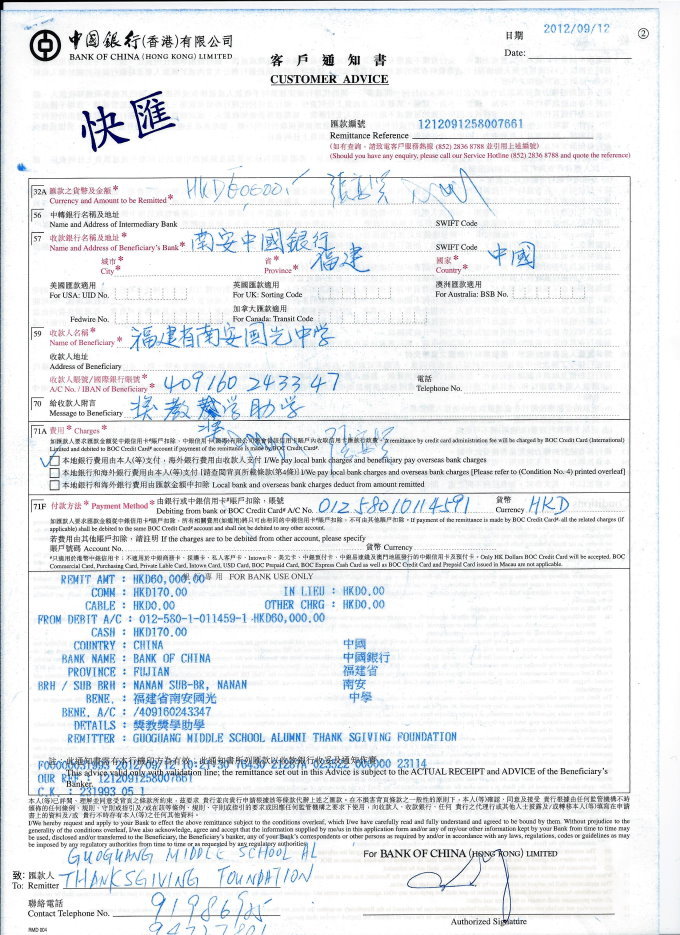 中國銀行(香港)有限公司
BANK OF CHINA (HONG KONG) LIMITED
日期 2012/09/12
Date:
②
客戶通知書
CUSTOMER ADVICE
快匯
匯款編號
Remittance Reference 1212091258007661
(如有查詢，請致電客戶服務熱線 (852) 2836 8788 並引用上述編號)
(Should you have any enquiry, please call our Service Hotline (852) 2836 8788 and quote the reference)
32A 匯款之貨幣及金額*
Currency and Amount to be Remitted* HKD60,000
56 中轉銀行名稱及地址
Name and Address of Intermediary Bank SWIFT Code
57 收款銀行名稱及地址*
Name and Address of Beneficiary's Bank* 南安中國銀行 SWIFT Code
城市* 省* 福建 國家* 中國
City* Province* Country*
美國匯款適用 英國匯款適用 澳洲匯款適用
For USA: UID No. For UK: Sorting Code For Australia: BSB No.
加拿大匯款適用
Fedwire No. For Canada: Transit Code
59 收款人名稱*
Name of Beneficiary* 福建省南安國光中学
收款人地址
Address of Beneficiary
收款人賬號/國際銀行賬號*
A/C No. / IBAN of Beneficiary* 409160243347 電話
Telephone No.
70 給收款人附言
Message to Beneficiary 奖教奖学助学
71A 費用* Charges*
如匯款人要求匯款金額從中銀信用卡#賬戶扣除，中銀信用卡(國際)有限公司將會從該信用卡賬戶內收取信用卡匯款行政費。A remittance by credit card administration fee will be charged by BOC Credit Card (International)
Limited and debited to BOC Credit Card# account if payment of the remittance is made by BOC Credit Card#.
✓ 本地銀行費用由本人(等)支付，海外銀行費用由收款人支付 I/We pay local bank charges and beneficiary pay overseas bank charges
本地銀行和海外銀行費用由本人(等)支付 [請查閱背頁所載條款(第4條)] I/We pay local bank charges and overseas bank charges [Please refer to (Condition No. 4) printed overleaf]
本地銀行和海外銀行費用由匯款金額中扣除 Local bank and overseas bank charges deduct from amount remitted
71F 付款方法* Payment Method* 由銀行或中銀信用卡#賬戶扣除，賬號 貨幣
Debiting from bank or BOC Credit Card# A/C No. 01258010114591 Currency HKD
如匯款人要求匯款金額從中銀信用卡#賬戶扣除，所有相關費用(如適用)將只可由相同的中銀信用卡#賬戶扣除，不可由其他賬戶扣除。If payment of the remittance is made by BOC Credit Card# all the related charges (if
applicable) shall be debited to the same BOC Credit Card# account and shall not be debited to any other account.
若費用由其他賬戶扣除，請註明 If the charges are to be debited from other account, please specify
賬戶號碼 Account No. 貨幣 Currency
Only HK Dollars BOC Credit Card will be accepted. BOC
Commercial Card, Purchasing Card, Private Lable Card, Intown Card, USD Card, BOC Prepaid Card, BOC Express Cash Card as well as BOC Credit Card and Prepaid Card issued in Macau are not applicable.
FOR BANK USE ONLY
REMIT AMT : HKD60,000.00
COMM : HKD170.00 IN LIEU : HKD0.00
CABLE : HKD0.00 OTHER CHRG : HKD0.00
FROM DEBIT A/C : 012-580-1-011459-1 HKD60,000.00
CASH : HKD170.00
COUNTRY : CHINA 中國
BANK NAME : BANK OF CHINA 中國銀行
PROVINCE : FUJIAN 福建省
BRH / SUB BRH : NANAN SUB-BR, NANAN 南安
BENE. : 福建省南安國光 中學
BENE. A/C : /409160243347
DETAILS : 獎教獎學助學
REMITTER : GUOGUANG MIDDLE SCHOOL ALUMNI THANK SGIVING FOUNDATION
This advice valid only with validation line; the remittance set out in this Advice is subject to the ACTUAL RECEIPT and ADVICE of the Beneficiary's
OUR REF : 1212091258007661
Banker.
C.K. : 231993 05 1
I/We hereby request and apply to your Bank to effect the above remittance subject to the conditions overleaf, which I/we have carefully read and fully understand and agreed to be bound by them. Without prejudice to the
generality of the conditions overleaf, I/we also acknowledge, agree and accept that the information supplied by me/us in this application form and/or any of my/our other information kept by your Bank from time to time may
be used, disclosed and/or transferred to the Beneficiary, the Beneficiary's banker, any of your Bank's correspondents or other persons as required by and/or in accordance with any laws, regulations, codes or guidelines as may
be imposed by any regulatory authorities from time to time or as requested by any regulatory authorities.
GUOGUANG MIDDLE SCHOOL AL
For BANK OF CHINA (HONG KONG) LIMITED
致: 匯款人
To: Remitter THANKSGIVING FOUNDATION
聯絡電話
Contact Telephone No.
Authorized Signature
RMD 004